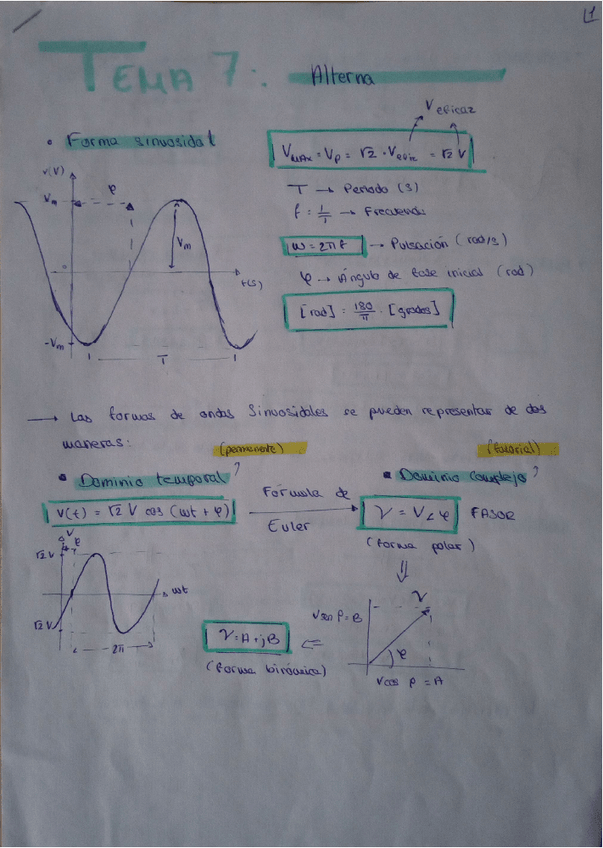 1
TEMA 7: Alterna
• Forma sinusoidal
V eficaz
Vmáx = Vp = √2 · Vefic = √2 V
T → Periodo (s)
f = 1/T → Frecuencia
ω = 2πf → Pulsación (rad/s)
φ → Ángulo de base inicial (rad)
[rad] = 180/π · [grados]
v(V)
Vm
φ
Vm
0
t(s)
-Vm
T
→ Las formas de ondas sinusoidales se pueden representar de dos
maneras:
(permanente)
(fasorial)
• Dominio temporal?
• Dominio complejo?
v(t) = √2 V cos (ωt + φ)
Fórmula de
Euler
V = V∠φ FASOR
(forma polar)
V
φ
√2 V
ωt
√2 V
2π
V = A + jB
(forma binómica)
V
V sen φ = B
φ
V cos φ = A